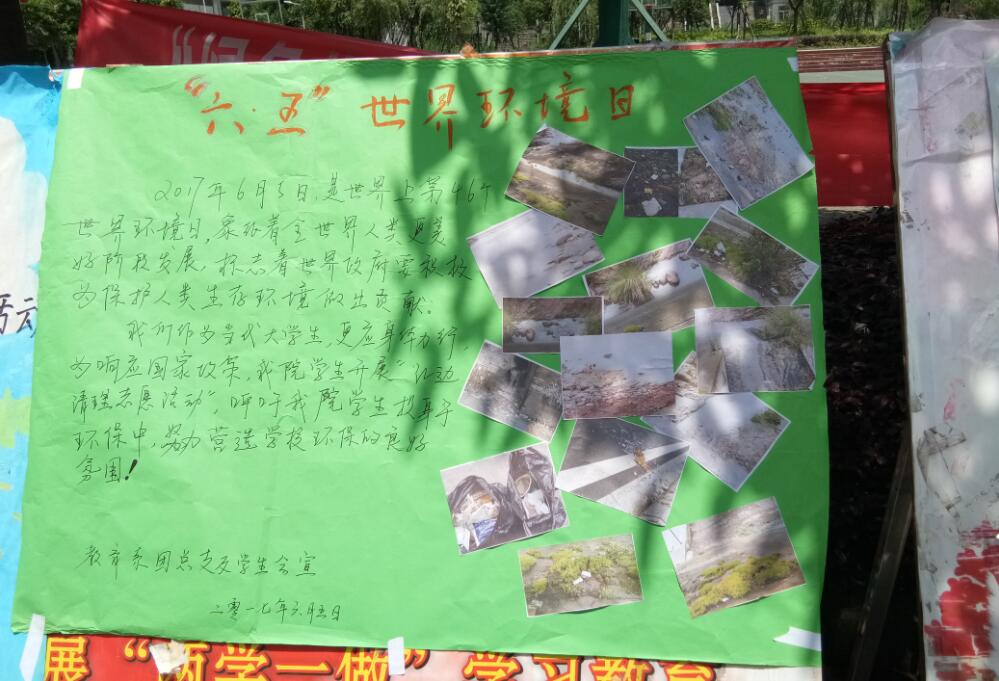 “六·五”世界环境日
2017年6月5日,是世界上第46个
世界环境日,象征着全世界人类更美
好阶段发展,标志着世界政府要积极
为保护人类生存环境做出贡献。
我们作为当代大学生,更应身体力行,
为响应国家政策,我院学生开展“江边
清理志愿活动”,呼吁我院学生投身于
环保中,努力营造学校环保的良好
氛围!
教育系团总支及学生会宣
二零一七年六月五日
展“两学一做”学习教育